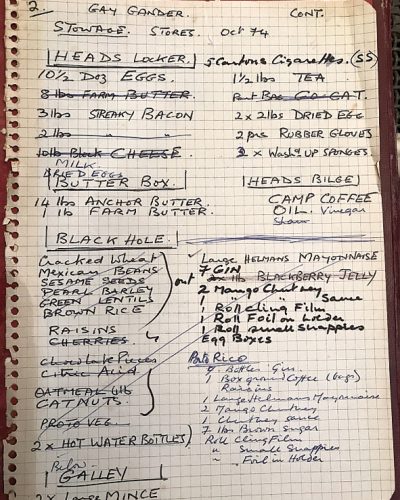 2. GAY GANDER. CONT.
STOWAGE. STORES. Oct 74
HEADS LOCKER.
10½ Doz EGGS.
8 lbs FARM BUTTER.
3lbs STREAKY BACON
2 lbs " "
10lb Block CHEESE
MILK.
DRIED EGGS
5 Cartons Cigarettes. (SS)
1½ lbs TEA
Part Bag Go-CAT.
2 x 2lbs DRIED EGG
2 prs RUBBER GLOVES
x Wash'g UP SPONGES
BUTTER BOX.
14 lbs ANCHOR BUTTER.
1 lb FARM BUTTER.
HEADS BILGE
CAMP COFFEE
OIL. Vinegar
BLACK HOLE.
Cracked Wheat
Mexican BEANS
SESAME SEEDS
PEARL BARLEY
GREEN LENTILS
BROWN RICE
out
RAISINS
CHERRIES.
Chocolate Pieces
Citric Acid
OATMEAL 6lb
CATNUTS.
PROTOVEG.
2 x HOT WATER BOTTLES
Large HELMANS MAYONNAISE
7 GIN
lb BLACKBERRY JELLY
2 Mango Chutney
1 " " Sauce
1 Roll Cling Film
1 Roll Foil on Holder
1 Roll Small Snappies
Egg Boxes
Porto Rico
Bottles Gin.
1 Box ground Coffee (bags)
Raisins
1 Large Helmans Mayonnaise
2 Mango Chutney
1 Chutney Sauce
7 lb Brown Sugar
Roll Cling Film
" Small Snappies
" Foil in Holder
Below
GALLEY
2 x Large MINCE